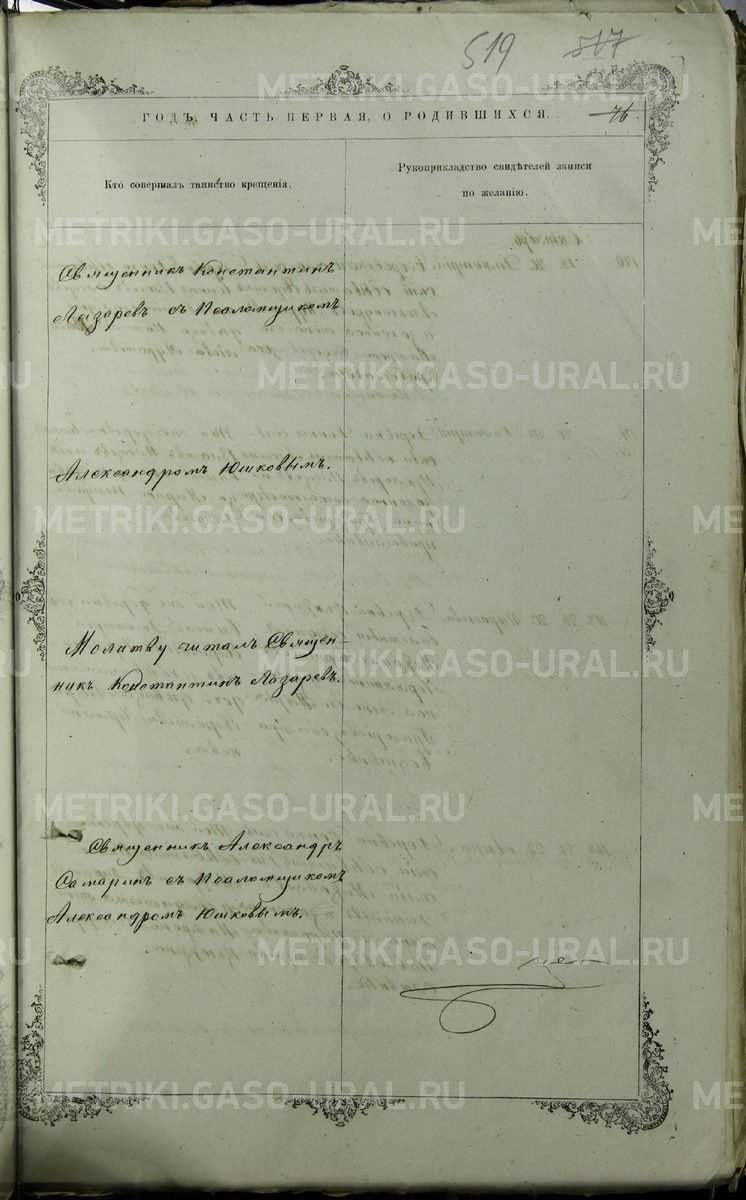 519 517
ГОДЪ, ЧАСТЬ ПЕРВАЯ, О РОДИВШИХСЯ. 76
Кто совершалъ таинство крещенія.
Рукоприкладство свидѣтелей записи
по желанію.
Священникъ Константинъ
Лазаревъ съ Псаломщикомъ
Александромъ Юшковымъ.
Молитву читалъ Священ-
никъ Константинъ Лазаревъ.
Священникъ Александръ
Самаринъ съ Псаломщикомъ
Александромъ Юшковымъ.
METRIKI.GASO-URAL.RU